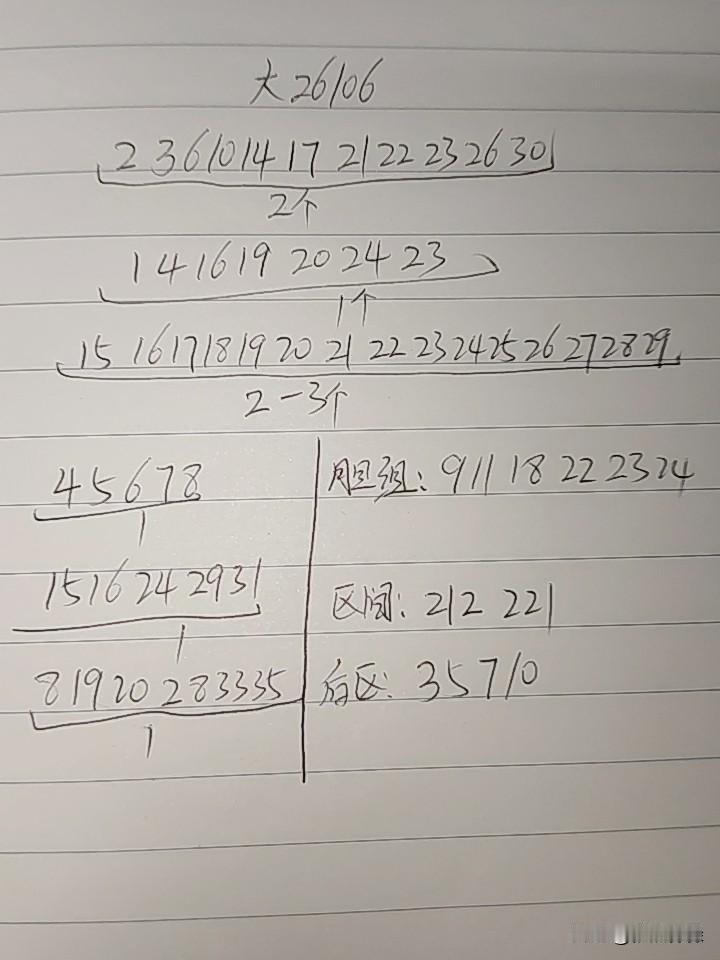 大26106
2 3 6 10 14 17 21 22 23 26 30
2个
1 4 16 19 20 24 23
1个
15 16 17 18 19 20 21 22 23 24 25 26 27 28 29
2-3个
4 5 6 7 8
1
15 16 24 29 31
1
8 19 20 28 33 35
1
胆组: 9 11 18 22 23 24
区间: 212 221
后区: 3 5 7 10